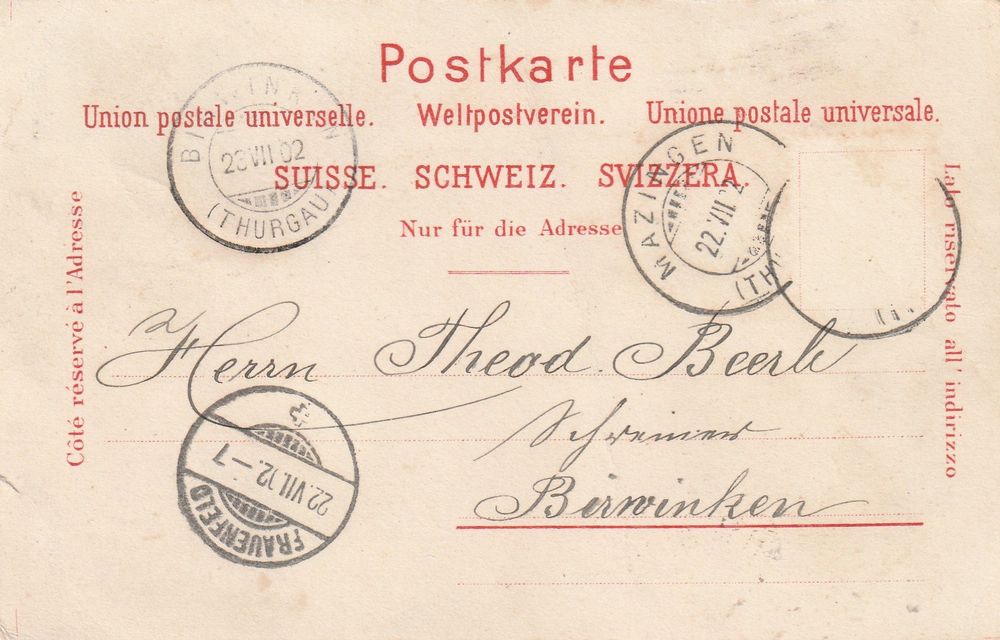 Postkarte
Union postale universelle. Weltpostverein. Unione postale universale.
SUISSE. SCHWEIZ. SVIZZERA.
Nur für die Adresse
Côté réservé à l'Adresse
Lato riservato all' indirizzo
23 VII 02
(THURGAU)
MAZINGEN
22. VII. 02
(TH
Herrn Theod. Beerli
Schreiner
Birwinken
22. VII. 12. – 7
FRAUENFELD